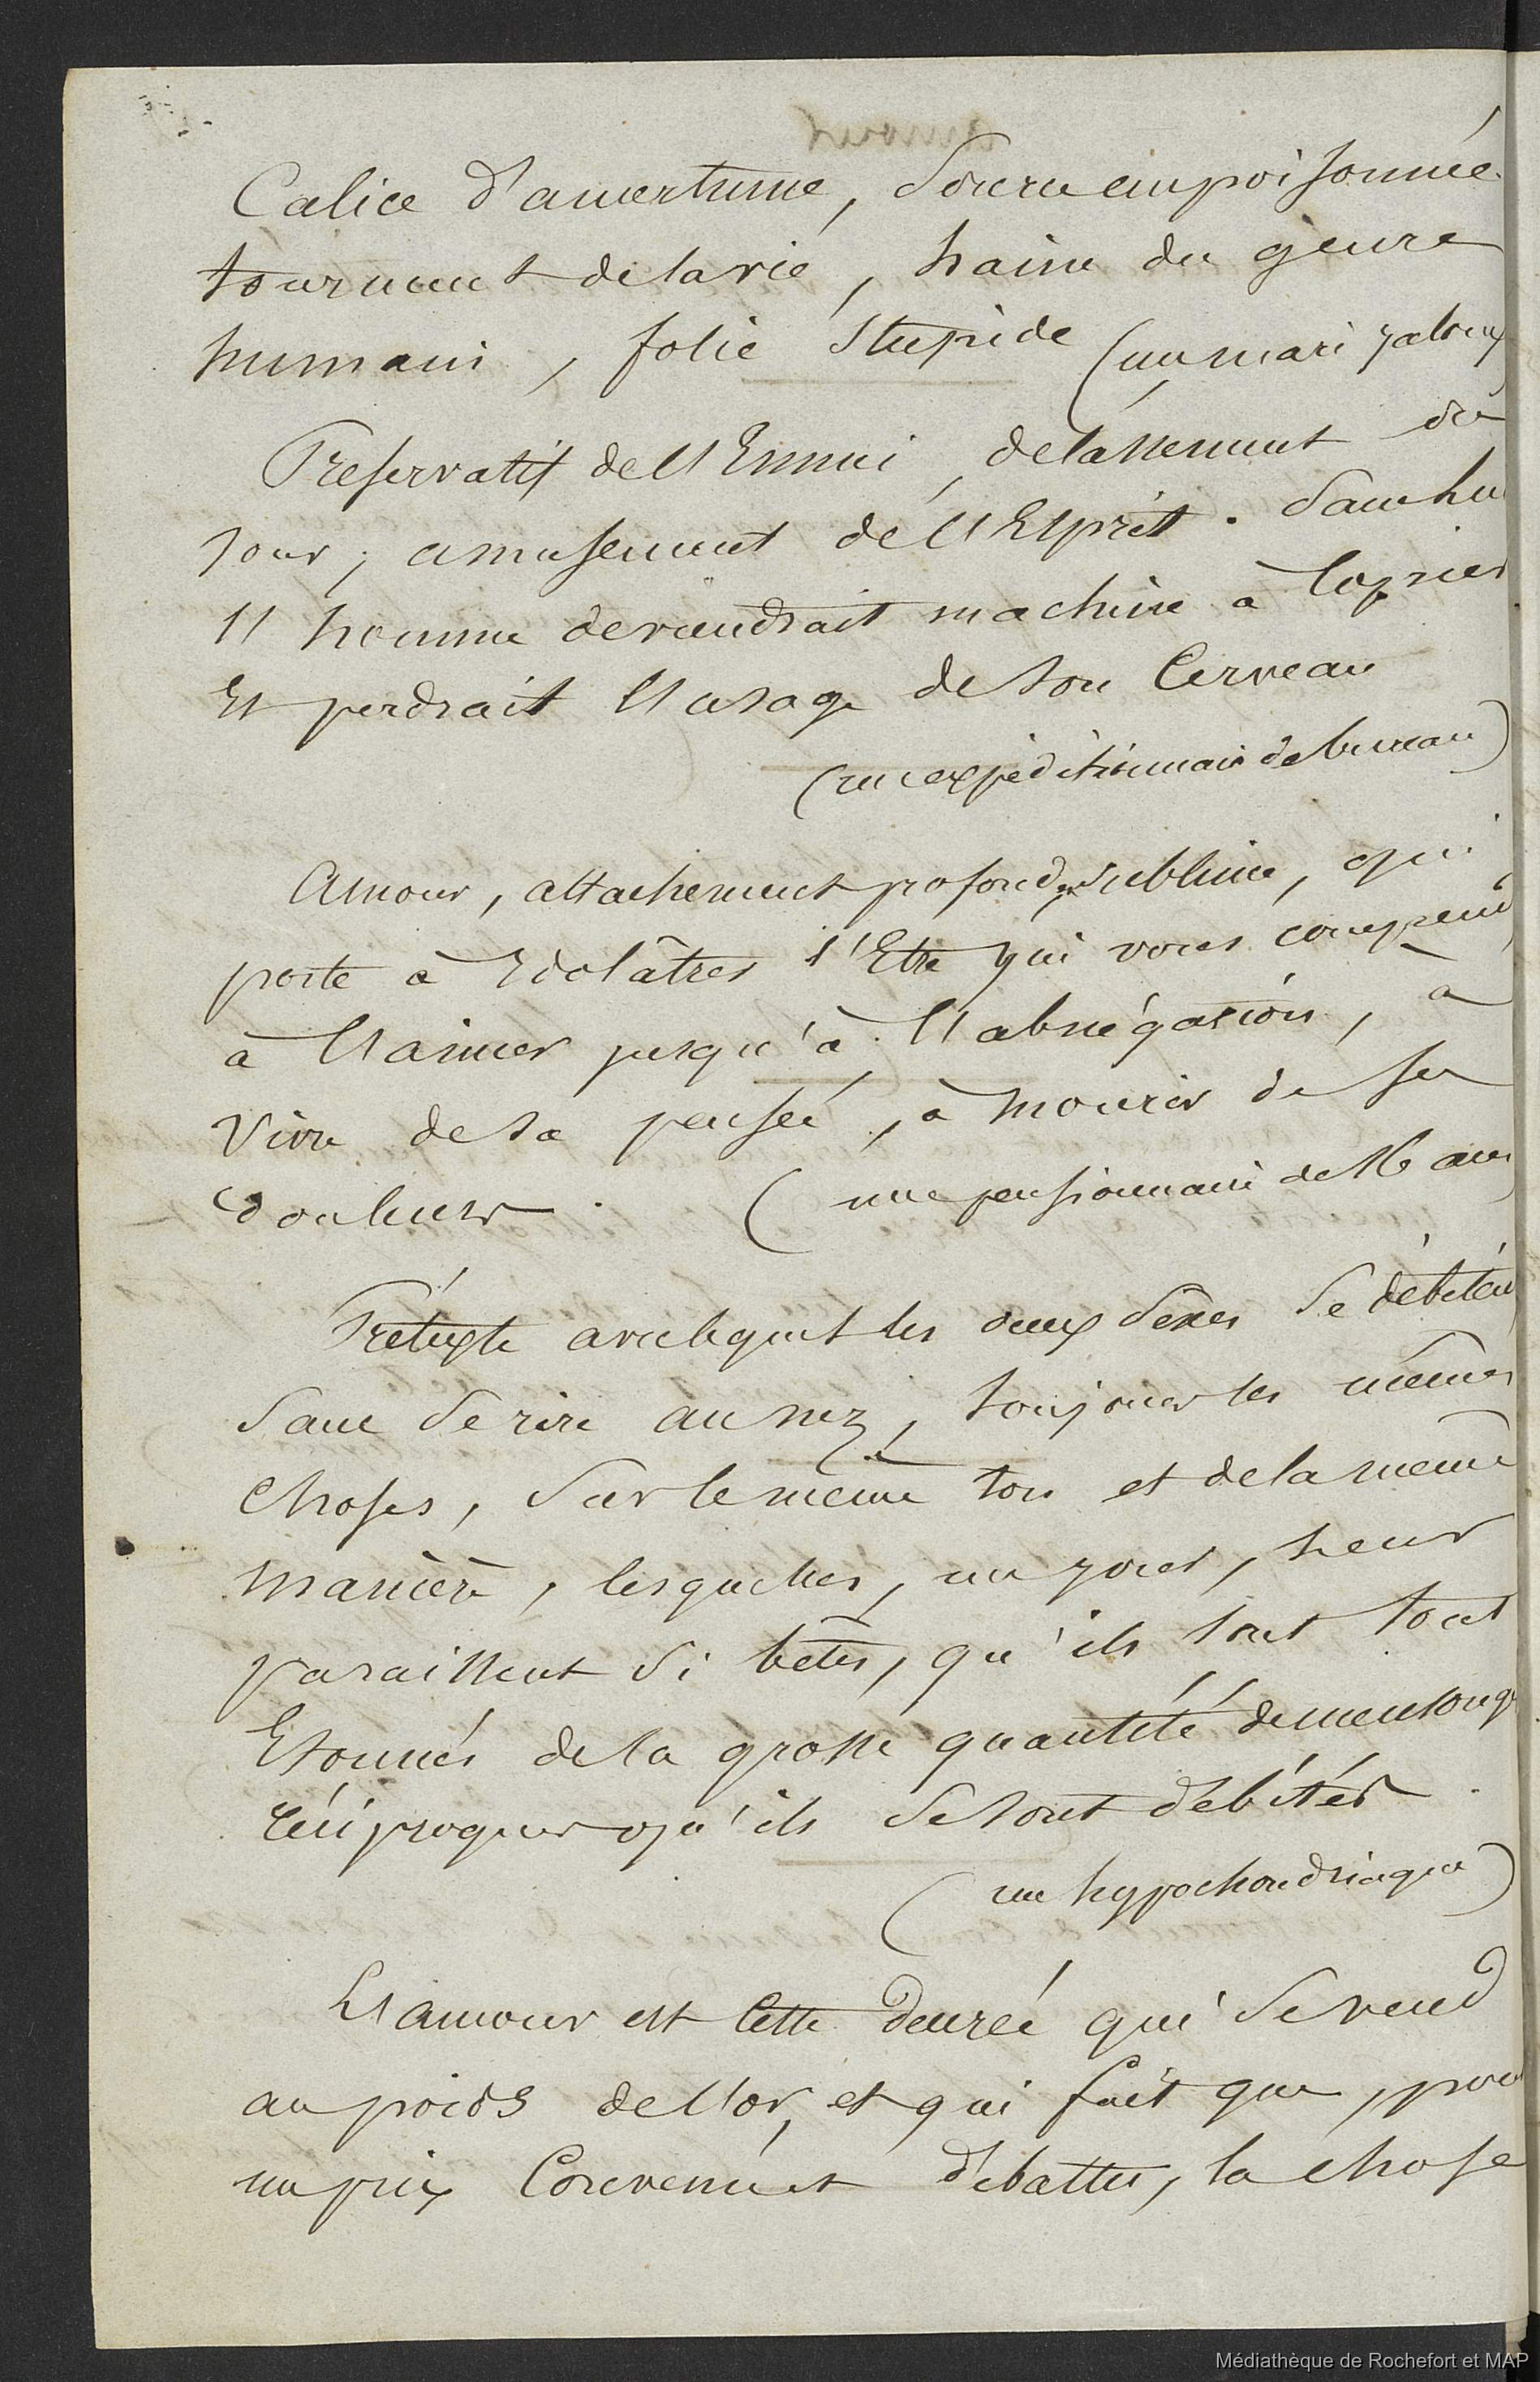 Calice d'amertume, source empoisonnée
tourment de la vie, haine du genre
humain, folie stupide (un mari jaloux
Preservatif de l'Ennui, delassement du
jour, amusement de l'Esprit. Sans lui
l'homme deviendrait machine à copier
Et perdrait l'usage de son Cerveau
(un expéditionnaire de bureau)
Amour, attachement profond, sublime, qui
porte à idolâtrer l'Etre qui vous comprend
à l'aimer jusqu'à l'abnégation, à
vivre de sa pensée, à mourir de sa
douleur. (une pensionnaire de 16 ans)
Prétexte avec lequel les deux sexes se débitent
sans se rire au nez, toujours les mêmes
choses, sur le même ton et de la même
manière, lesquelles, un jour, leur
paraissent si bêtes, qu'ils sont tout
Etonnés de la grosse quantité de mensonges
réciproques qu'ils se sont débités
(un hypochondriaque)
L'amour est cette denrée qui se vend
au poids de l'or, et qui fait que, pour
un prix convenu et débattu, la chose
Médiathèque de Rochefort et MAP